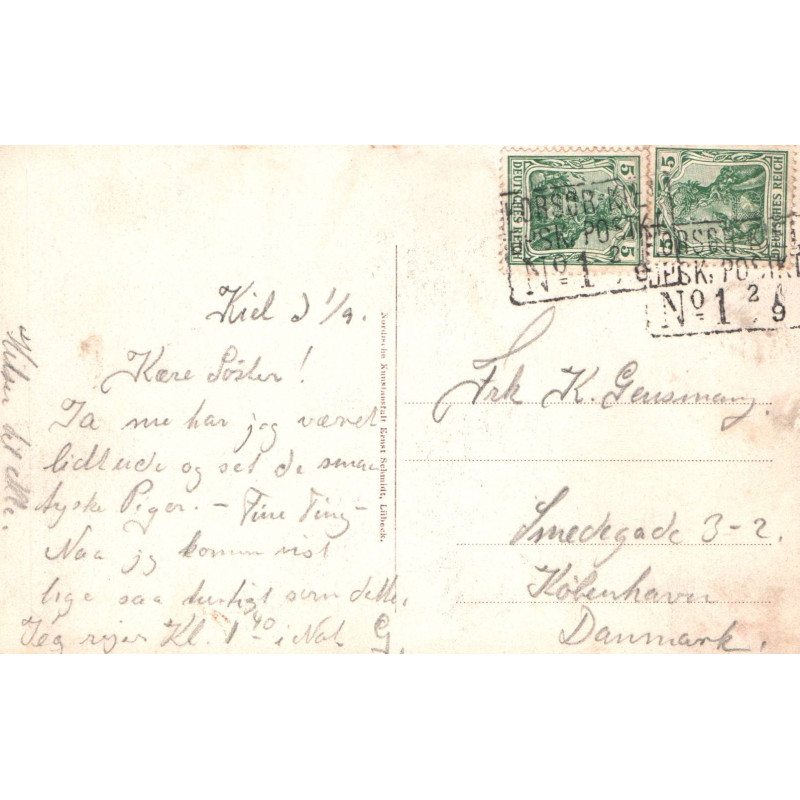 Kiel d 1/9.
Kære Søster!
Ja nu har jeg været
lidt ude og set de smaa
tyske Piger. - Fine Ting -
Naa jeg kommer vist
lige saa hurtigt som dette,
Jeg rejser Kl. 1 40 i Nat G,
Hilsen
Nordische Kunstanstalt Ernst Schmidt, Lübeck.
DEUTSCHES REICH
5 5
5 5
DEUTSCHES REICH
KORSØR-KIEL
DPSK. POSTKT
No 1 2 9
KORSØR-K
DPSK. POSTKT
No 1 2 9
Frk K.
Smedegade 3-2.
København
Danmark.